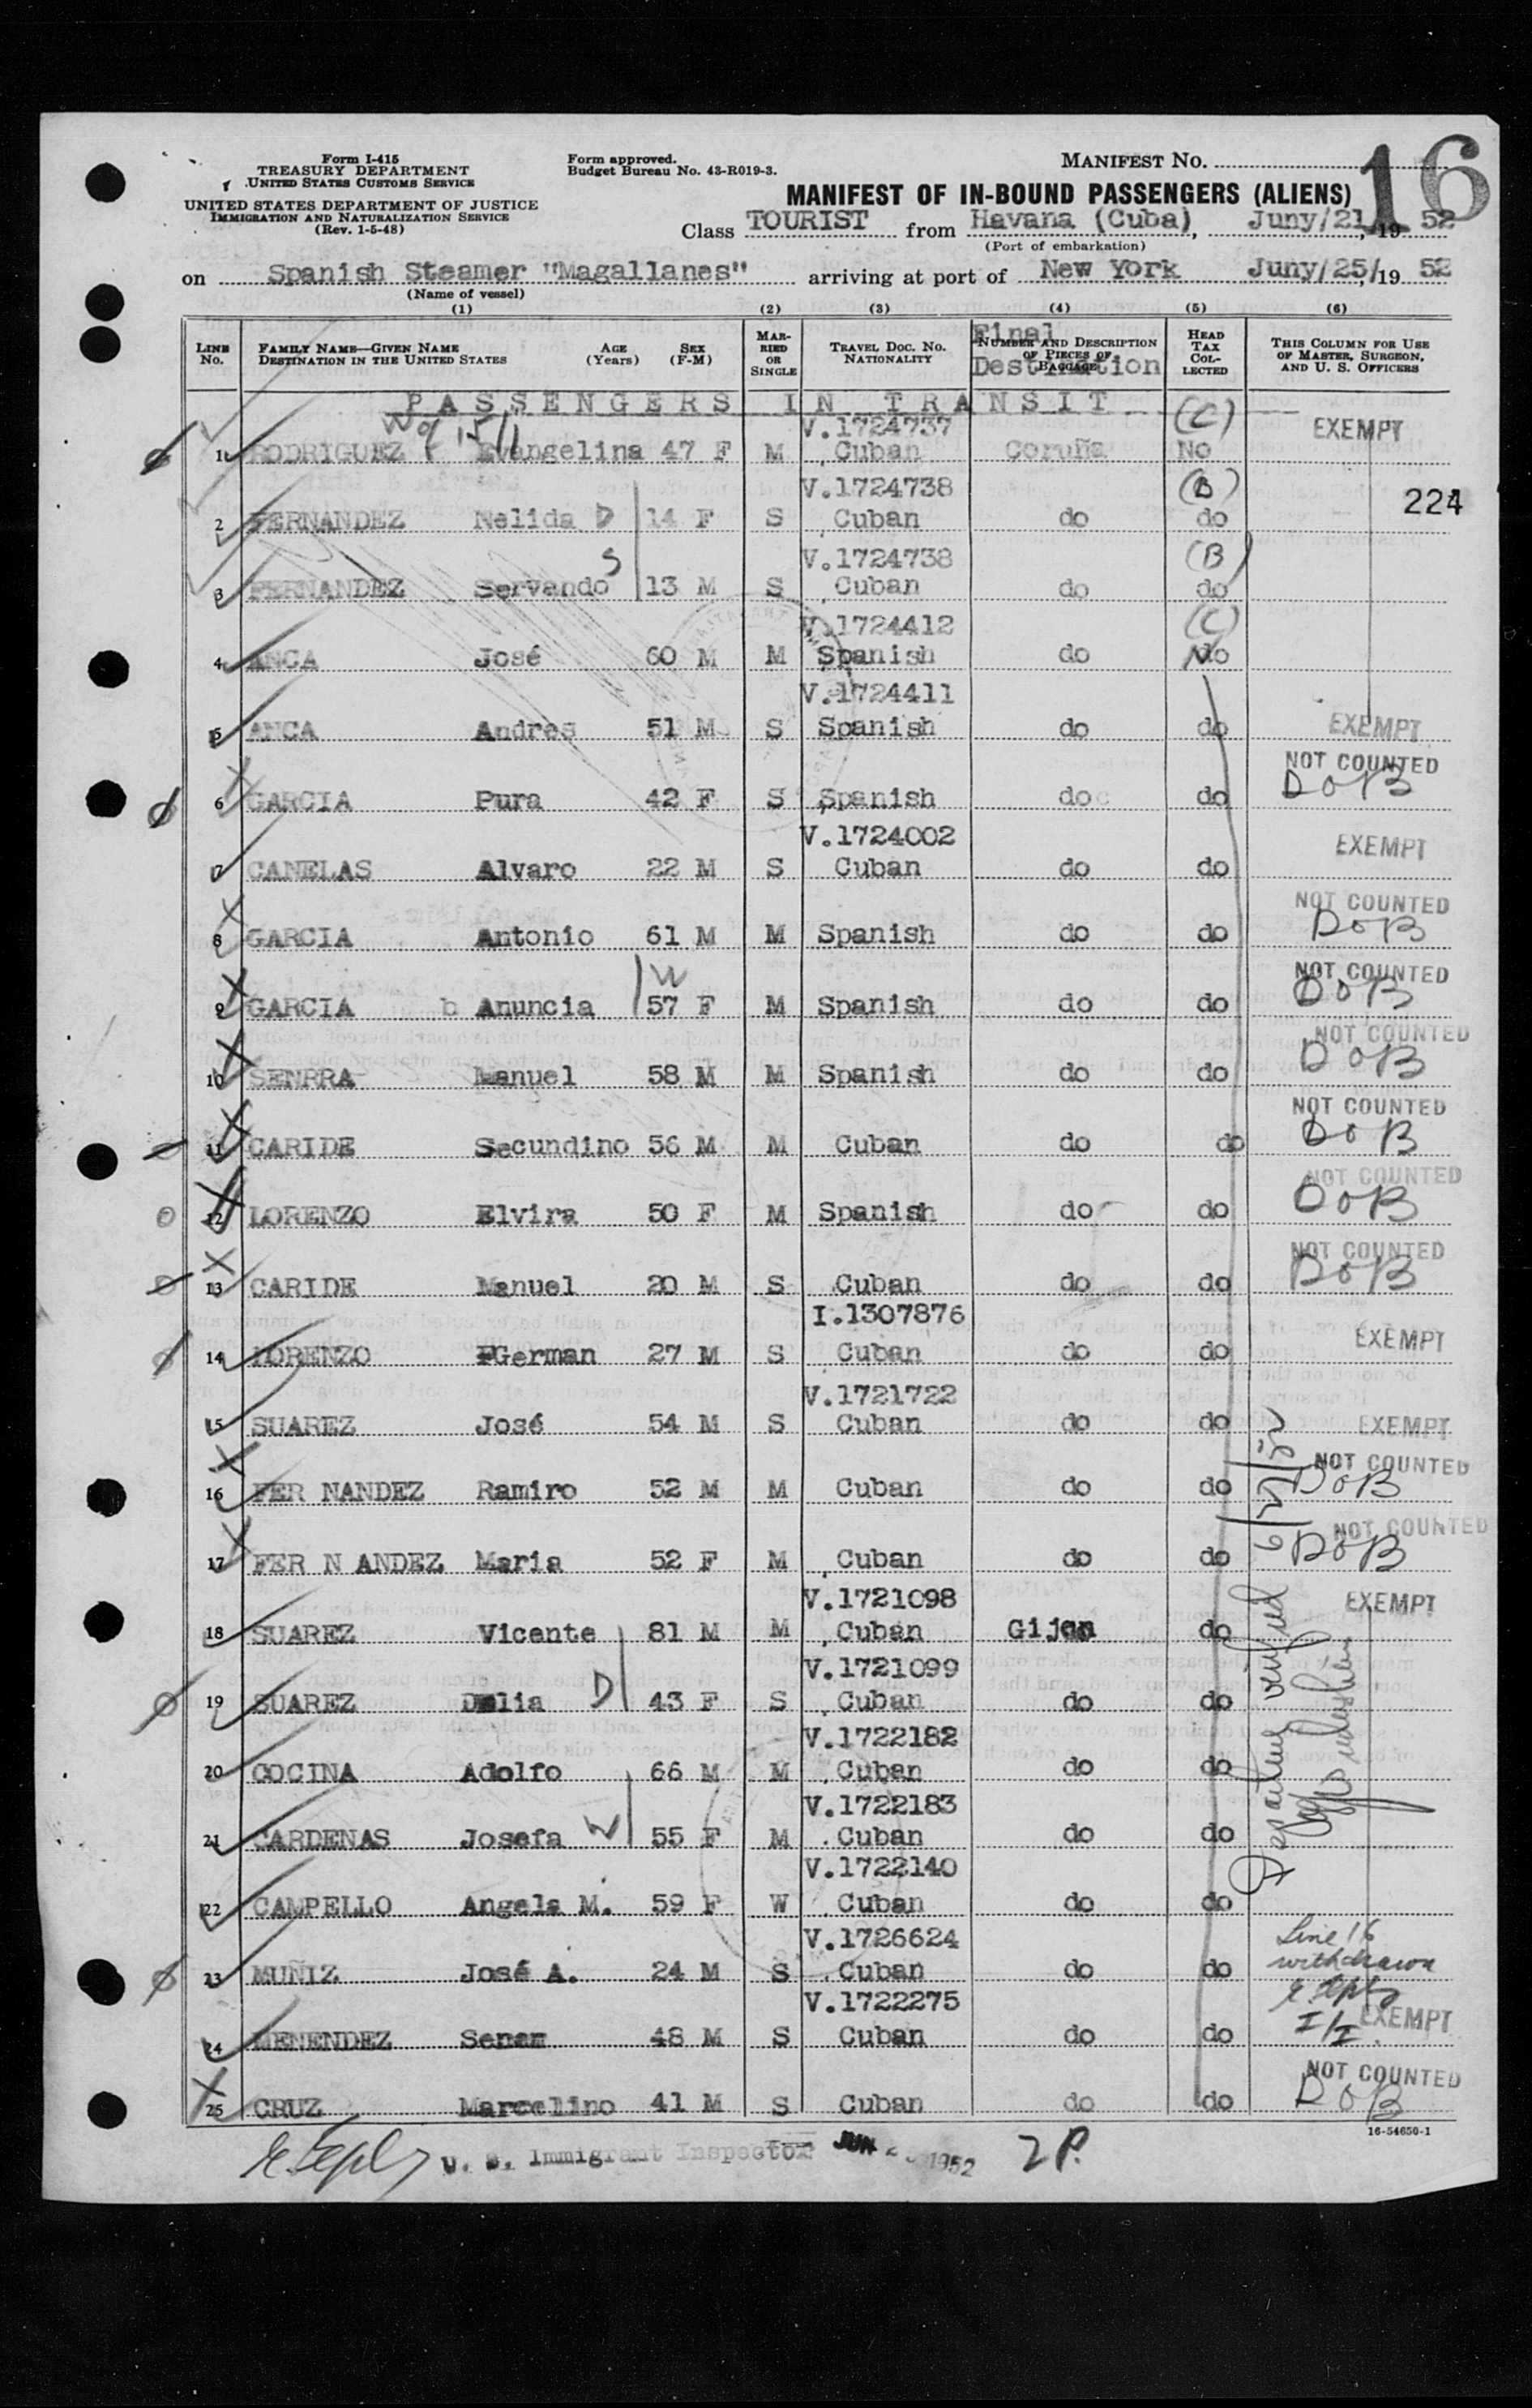 Form I-415
TREASURY DEPARTMENT
UNITED STATES CUSTOMS SERVICE
UNITED STATES DEPARTMENT OF JUSTICE
IMMIGRATION AND NATURALIZATION SERVICE
(Rev. 1-5-48)
Form approved.
Budget Bureau No. 43-R019-3.
MANIFEST NO.
16
MANIFEST OF IN-BOUND PASSENGERS (ALIENS)
Class TOURIST from Havana (Cuba), Juny/21, 19 52
(Port of embarkation)
on Spanish Steamer "Magallanes" arriving at port of New York Juny/25/19 52
(Name of vessel)
(1) (2) (3) (4) (5) (6)
LINE No. FAMILY NAME—GIVEN NAME DESTINATION IN THE UNITED STATES AGE (Years) SEX (F-M) MARRIED OR SINGLE TRAVEL DOC. NO. NATIONALITY NUMBER AND DESCRIPTION OF PIECES OF BAGGAGE Final Destination HEAD TAX COLLECTED THIS COLUMN FOR USE OF MASTER, SURGEON, AND U. S. OFFICERS
PASSENGERS IN TRANSIT
V.1724737 (C) EXEMPT
1 RODRIGUEZ Evangelina 47 F M Cuban Coruña No
V.1724738 (B) 224
2 FERNANDEZ Nelida D 14 F S Cuban do do
S V.1724738 (B)
3 FERNANDEZ Servando 13 M S Cuban do do
V.1724412 (C)
4 ANCA José 60 M M Spanish do No
V.1724411
5 ANCA Andres 51 M S Spanish do do EXEMPT
NOT COUNTED
6 GARCIA Pura 42 F S Spanish do do DoB
V.1724002 EXEMPT
7 CANELAS Alvaro 22 M S Cuban do do
NOT COUNTED
8 GARCIA Antonio 61 M M Spanish do do DoB
W NOT COUNTED
9 GARCIA b Anuncia 57 F M Spanish do do DoB
NOT COUNTED
10 SENRRA Manuel 58 M M Spanish do do DoB
NOT COUNTED
11 CARIDE Secundino 56 M M Cuban do do DoB
NOT COUNTED
12 LORENZO Elvira 50 F M Spanish do do DoB
NOT COUNTED
13 CARIDE Manuel 20 M S Cuban do do DoB
I.1307876 EXEMPT
14 LORENZO German 27 M S Cuban do do
V.1721722
15 SUAREZ José 54 M S Cuban do do EXEMPT
NOT COUNTED
16 FER NANDEZ Ramiro 52 M M Cuban do do DoB
NOT COUNTED
17 FER N ANDEZ Maria 52 F M Cuban do do DoB
V.1721098 EXEMPT
18 SUAREZ Vicente 81 M M Cuban Gijon do
V.1721099
19 SUAREZ Delia D 43 F S Cuban do do
V.1722182
20 COCINA Adolfo 66 M M Cuban do do
V.1722183
21 CARDENAS Josefa W 55 F M Cuban do do
V.1722140
22 CAMPELLO Angela M. 59 F W Cuban do do
V.1726624
23 MUÑIZ José A. 24 M S Cuban do do
V.1722275
24 MENENDEZ Senen 48 M S Cuban do do EXEMPT
NOT COUNTED
25 CRUZ Marcelino 41 M S Cuban do do DoB
Departure verified
Line 16
withdrawn
I/I
16-54650-1
U. S. Immigrant Inspector JUN 1952 2P.